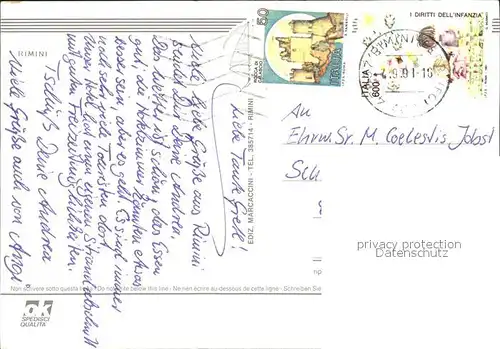 RIMINI
Liebe Tante Gretl!
Viele liebe Grüße aus Rimini
sendet Dir Deine Andrea.
Das Wetter ist schön, das Essen
gut, die Hotelzimmer könnten etwas
besser sein, aber es geht. Es sind immer
noch sehr viele Touristen dort.
Unser Hotel hat einen eigenen Strandabschnitt
mit guten Freizeitmöglichkeiten.
Tschüß Deine Andrea
Viele Grüße auch von Angi
EDIZ. MARCACCINI - TEL. 385714 - RIMINI
50
ITALIA
I DIRITTI DELL'INFANZIA
ITALIA
600
An
Ehrw. Sr. M. Coelestis Jobst
Sch
privacy protection
Datenschutz
Non scrivere sotto questa Do not write below this line - Ne rien écrire au-dessous de cette ligne - Schreiben Sie
OK
SPEDISCI
QUALITÀ